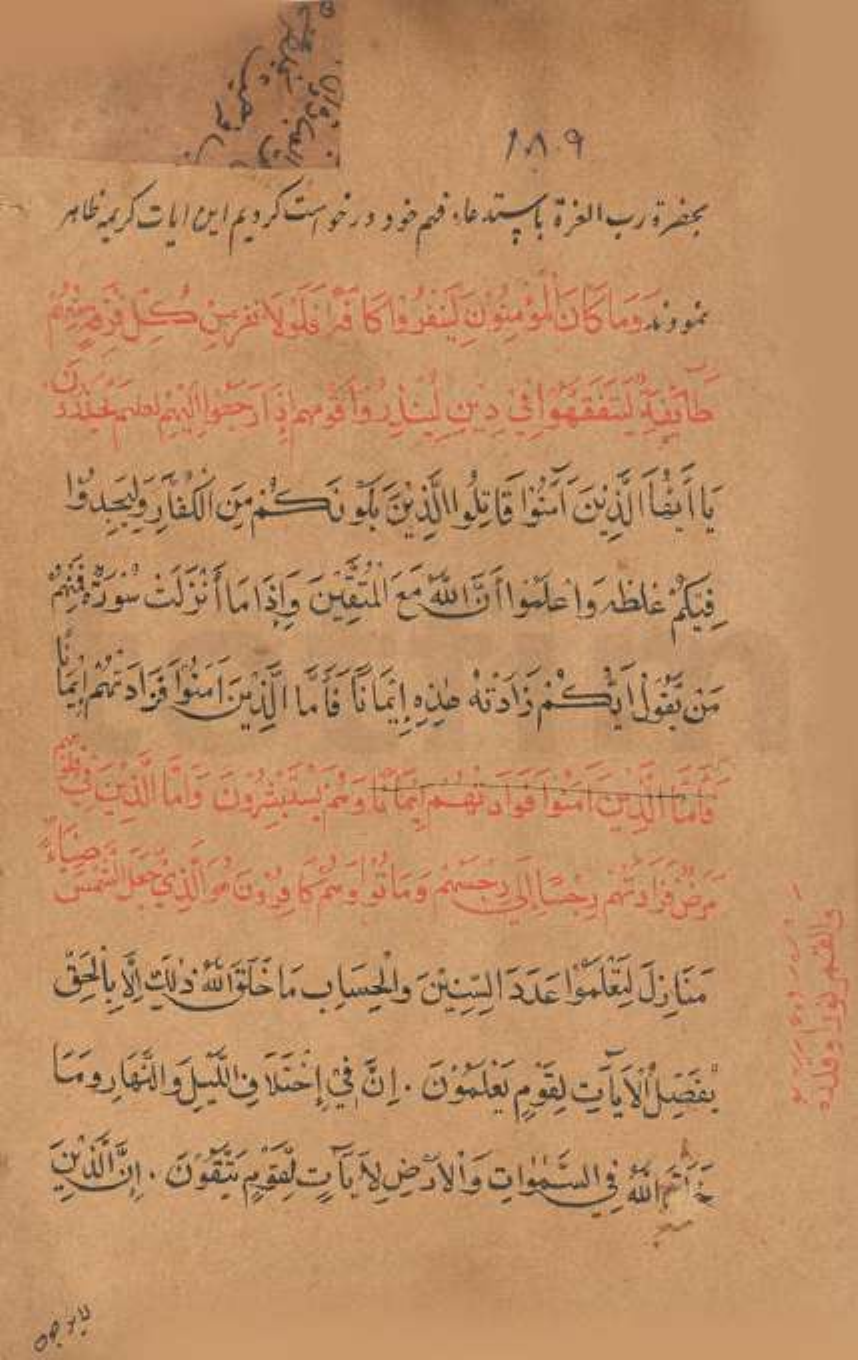 ١٨٩
بحضرة رب العزة باستدعاء فهم خود درخواست كرديم اين ايات كريمه ظاهر
نمودند وَمَا كَانَ الْمُؤْمِنُونَ لَيَنْفُرُوا كَافَّةً فَلَوْلَا نفر مِنْ كُلِّ فِرْقَةٍ مِنْهُمْ
طَائِفَةٌ لِيَتَفَقَّهُوا فِي دِينِ لِيُنْذِرُوا قَومهم إِذَا رَجَعُوا إِلَيْهِم لعلهم يَحْذَرُونَ
يَا أَيُّهَا الَّذِينَ آمَنُوا قَاتِلُوا الَّذِينَ يَلَوُنَكُمْ مِنَ الْكُفَّارِ وَلِيَجِدُوا
فِيكُمْ غلظه وَاعلَمُوا أَنَّ اللَّهَ مَعَ الْمُتَّقِينَ وَإِذَا مَا أُنْزِلَتْ سُورَةٌ فَمِنْهُمْ
مَن يَقُولُ أَيُّكُمْ زَادَتْهُ هٰذِهِ إِيمَانًا فَأَمَّا الَّذِينَ آمَنُوا فَزَادَتْهُمْ إِيمَانًا
فَأَمَّا الَّذِينَ آمَنُوا فَزَادَتْهُمْ إِيمَانًا وَهُمْ يَسْتَبْشِرُونَ وَأَمَّا الَّذِينَ فِي قلوبهم
مَرَضٌ فَزَادَتْهُمْ رِجْسًا إِلَى رِجْسِهِمْ وَمَاتُوا وَهُمْ كَافِرُونَ هُوَ الَّذِي جَعَلَ الشَّمْسَ ضِيَاءً
والقمر نورا وقدره
مَنَازِلَ لِتَعْلَمُوا عَدَدَ السِّنِينَ وَالْحِسَابِ مَا خَلَقَ اللَّهُ ذٰلِكَ إِلَّا بِالْحَقِّ
يُفَصِّلُ الْآيَاتِ لِقَوْمٍ يَعْلَمُونَ . اِنَّ فِي إِخْتِلَافِ اللَّيْلِ وَالنَّهَارِ وَمَا
خَلَقَ اللَّهُ فِي السَّمٰوَاتِ وَالْأَرْضِ لِآيَآتٍ لِقَوْمٍ يَتَّقُونَ . اِنَّ الَّذِينَ